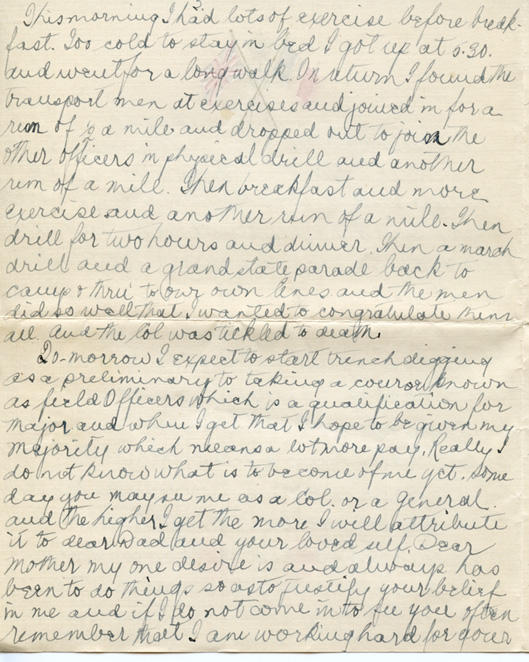 This morning I had lots of exercise before break-
fast. Too cold to stay in bed I got up at 5.30.
and went for a long walk. On return I found the
transport men at exercises and joined in for a
run of ½ a mile and dropped out to join the
other officers in physical drill and another
run of a mill. Then breakfast and more
exercise and another run of a mile. Then
drill for two hours and dinner. Then a march
drill and a grand state parade back to
camp & thru' to our own lines and the men
did so well that I wanted to congratulate them
all. and the Col was tickled to death.
To-morrow I expect to start trench digging
as a preliminary to taking a course known
as field Officers which is a qualification for
Major and when I get that I hope to be given my
Majority which means a lot more pay. Really I
do not know what is to become of me yet. Some
day you may see me as a Col. or a General.
and the higher I get the more I will attribute
it to dear Dad and your loved self. Dear
Mother my one desire is and always has
been to do things so as to justify your belief
in me and if I do not come in to see you often
remember that I am working hard for your